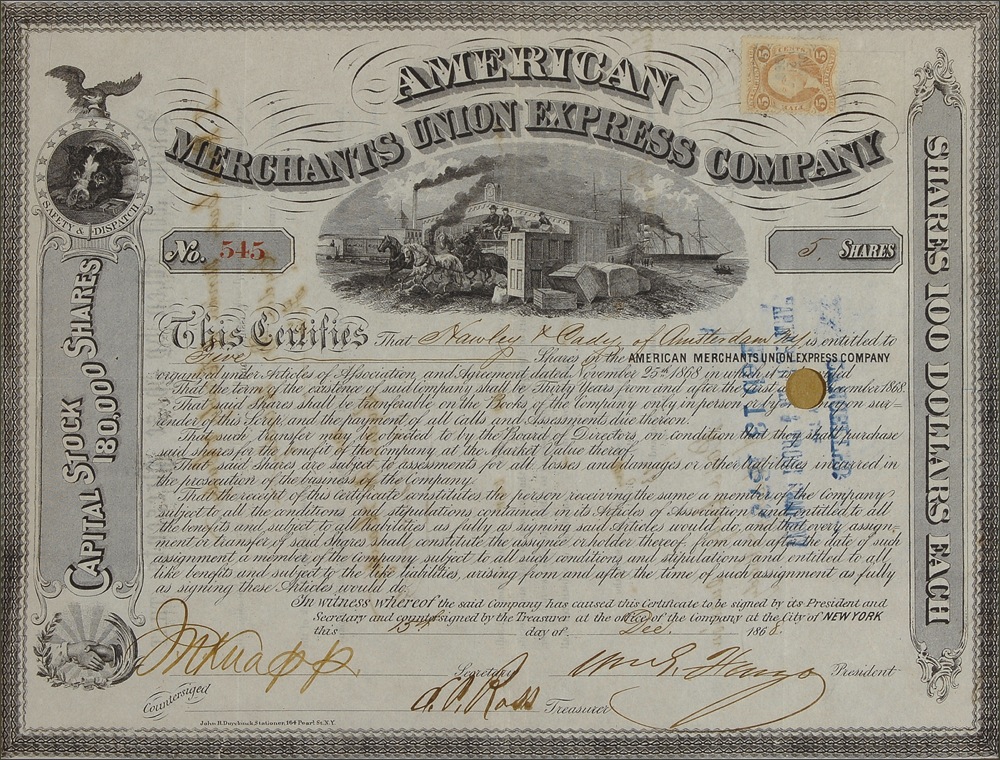 AMERICAN
MERCHANTS UNION EXPRESS COMPANY
5 CENTS 5
SAFETY & DISPATCH
No. 545
5. SHARES
CAPITAL STOCK
180,000 SHARES
SHARES 100 DOLLARS EACH
This Certifies That Hawley & Cady of Amsterdam NY is entitled to
Five Shares of the AMERICAN MERCHANTS UNION EXPRESS COMPANY
organized under Articles of Association, and Agreement dated November 25th 1868 in which it
That the term of the existence of said Company shall be Thirty Years from and after the December 1868.
That said Shares shall be transferable on the Books of the Company only in person or by upon sur=
render of this Scrip and the payment of all Calls and Assessments due thereon.
That such transfer may be objected to by the Board of Directors, on condition that they shall purchase
said shares for the benefit of the Company at the Market Value thereof.
That said shares are subject to assessments for all losses and damages or other liabilities incurred in
the prosecution of the business of the Company.
That the receipt of this certificate constitutes the person receiving the same a member of the Company
subject to all the conditions and stipulations contained in its Articles of Association and entitled to all
the benefits and subject to all liabilities as fully as signing said Articles would do, and that every assign=
ment or transfer of said Shares shall constitute the assignee or holder thereof, from and after the date of such
assignment a member of the Company, subject to all such conditions and stipulations and entitled to all
like benefits and subject to the like liabilities, arising from and after the time of such assignment as fully
as signing these Articles would do.
In witness whereof the said Company has caused this Certificate to be signed by its President and
Secretary and countersigned by the Treasurer at the office of the Company at the City of NEW YORK
this 15th day of Dec. 1868.
J N Knapp Secretary Wm G. Fargo President
Countersigned
A. P. Ross Treasurer
John B. Duychinck, Stationer, 164 Pearl St. N.Y.